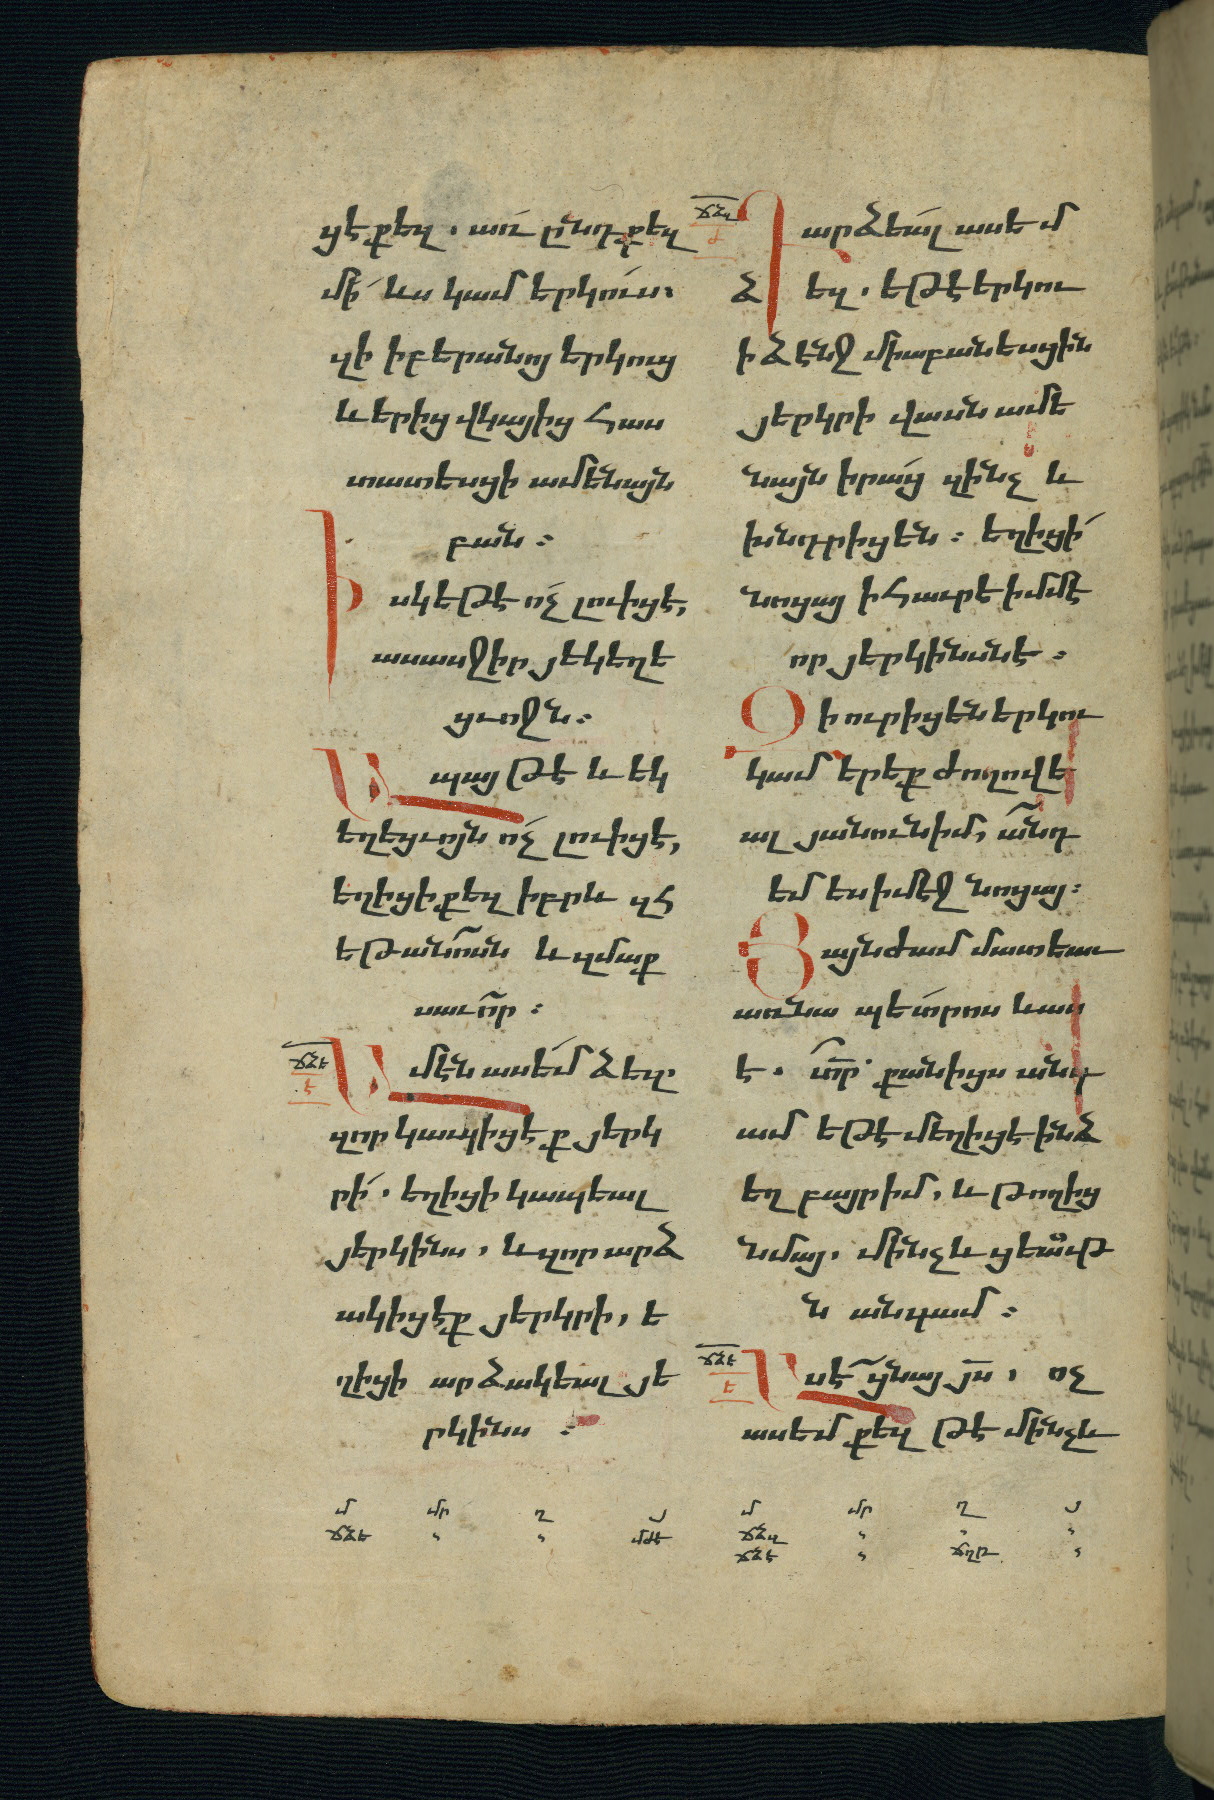 ցէ քեզ. առ ընդ քեզ
մի՛ ևս կամ երկուս.
զի ի բերանոյ երկուց
և երից վկայից հաս
տատեսցի ամենայն
բան։
Իսկ եթէ ոչ լուիցէ,
ասասջիր յեկեղե
ցւոջն։
Ապայ թէ և եկ
եղեցւոյն ոչ լուիցէ,
եղիցի քեզ իբրև զհ
եթանոսն և զմաք
սաւոր։
ՃՁԵ
Ամէն ասեմ ձեզ.
զոր կապիցէք յերկ
րի՛. եղիցի կապեալ
յերկինս, և զոր արձ
ակիցէք յերկրի, ե
ղիցի արձակեալ յե
րկինս։
մ մր ղ յ
ճձե , , մժե
ՃՁԶ
Դարձեալ ասեմ
ձեզ. եթէ երկու
ի ձէնջ միաբանեսցին
յերկրի վասն ամե
նայն իրաց զինչ և
խնդրիցեն։ եղիցի՛
նոցայ ի հաւրէ իմմէ
որ յերկինսն է։
Զի ուր իցեն երկու
կամ երեք ժողովե
ալ յանուն իմ, անդ
եմ ես ի մէջ նոցայ։
Յայնժամ մատեաւ
առնա պետրոս և աս
է. տ̄ր քանիցս անգ
ամ եթէ մեղիցէ ինձ
եղբայր իմ, և թողից
նմայ. մինչև ցեաւթ
ն անգամ։
ՃՁԷ
Ասէ ցնայ յ̄ս, ոչ
ասեմ քեզ թէ մինչև
մ մր ղ յ
ճձզ , , ,
ճձէ , ճղը ,